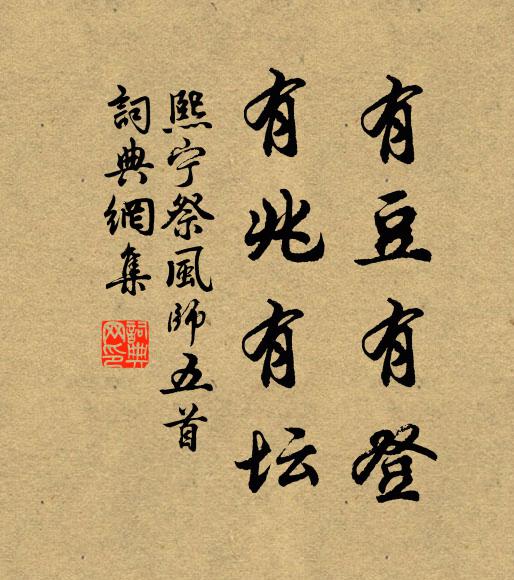 有豆有登
有兆有坛
熙宁祭風師五首
詞典網集
詞典網印